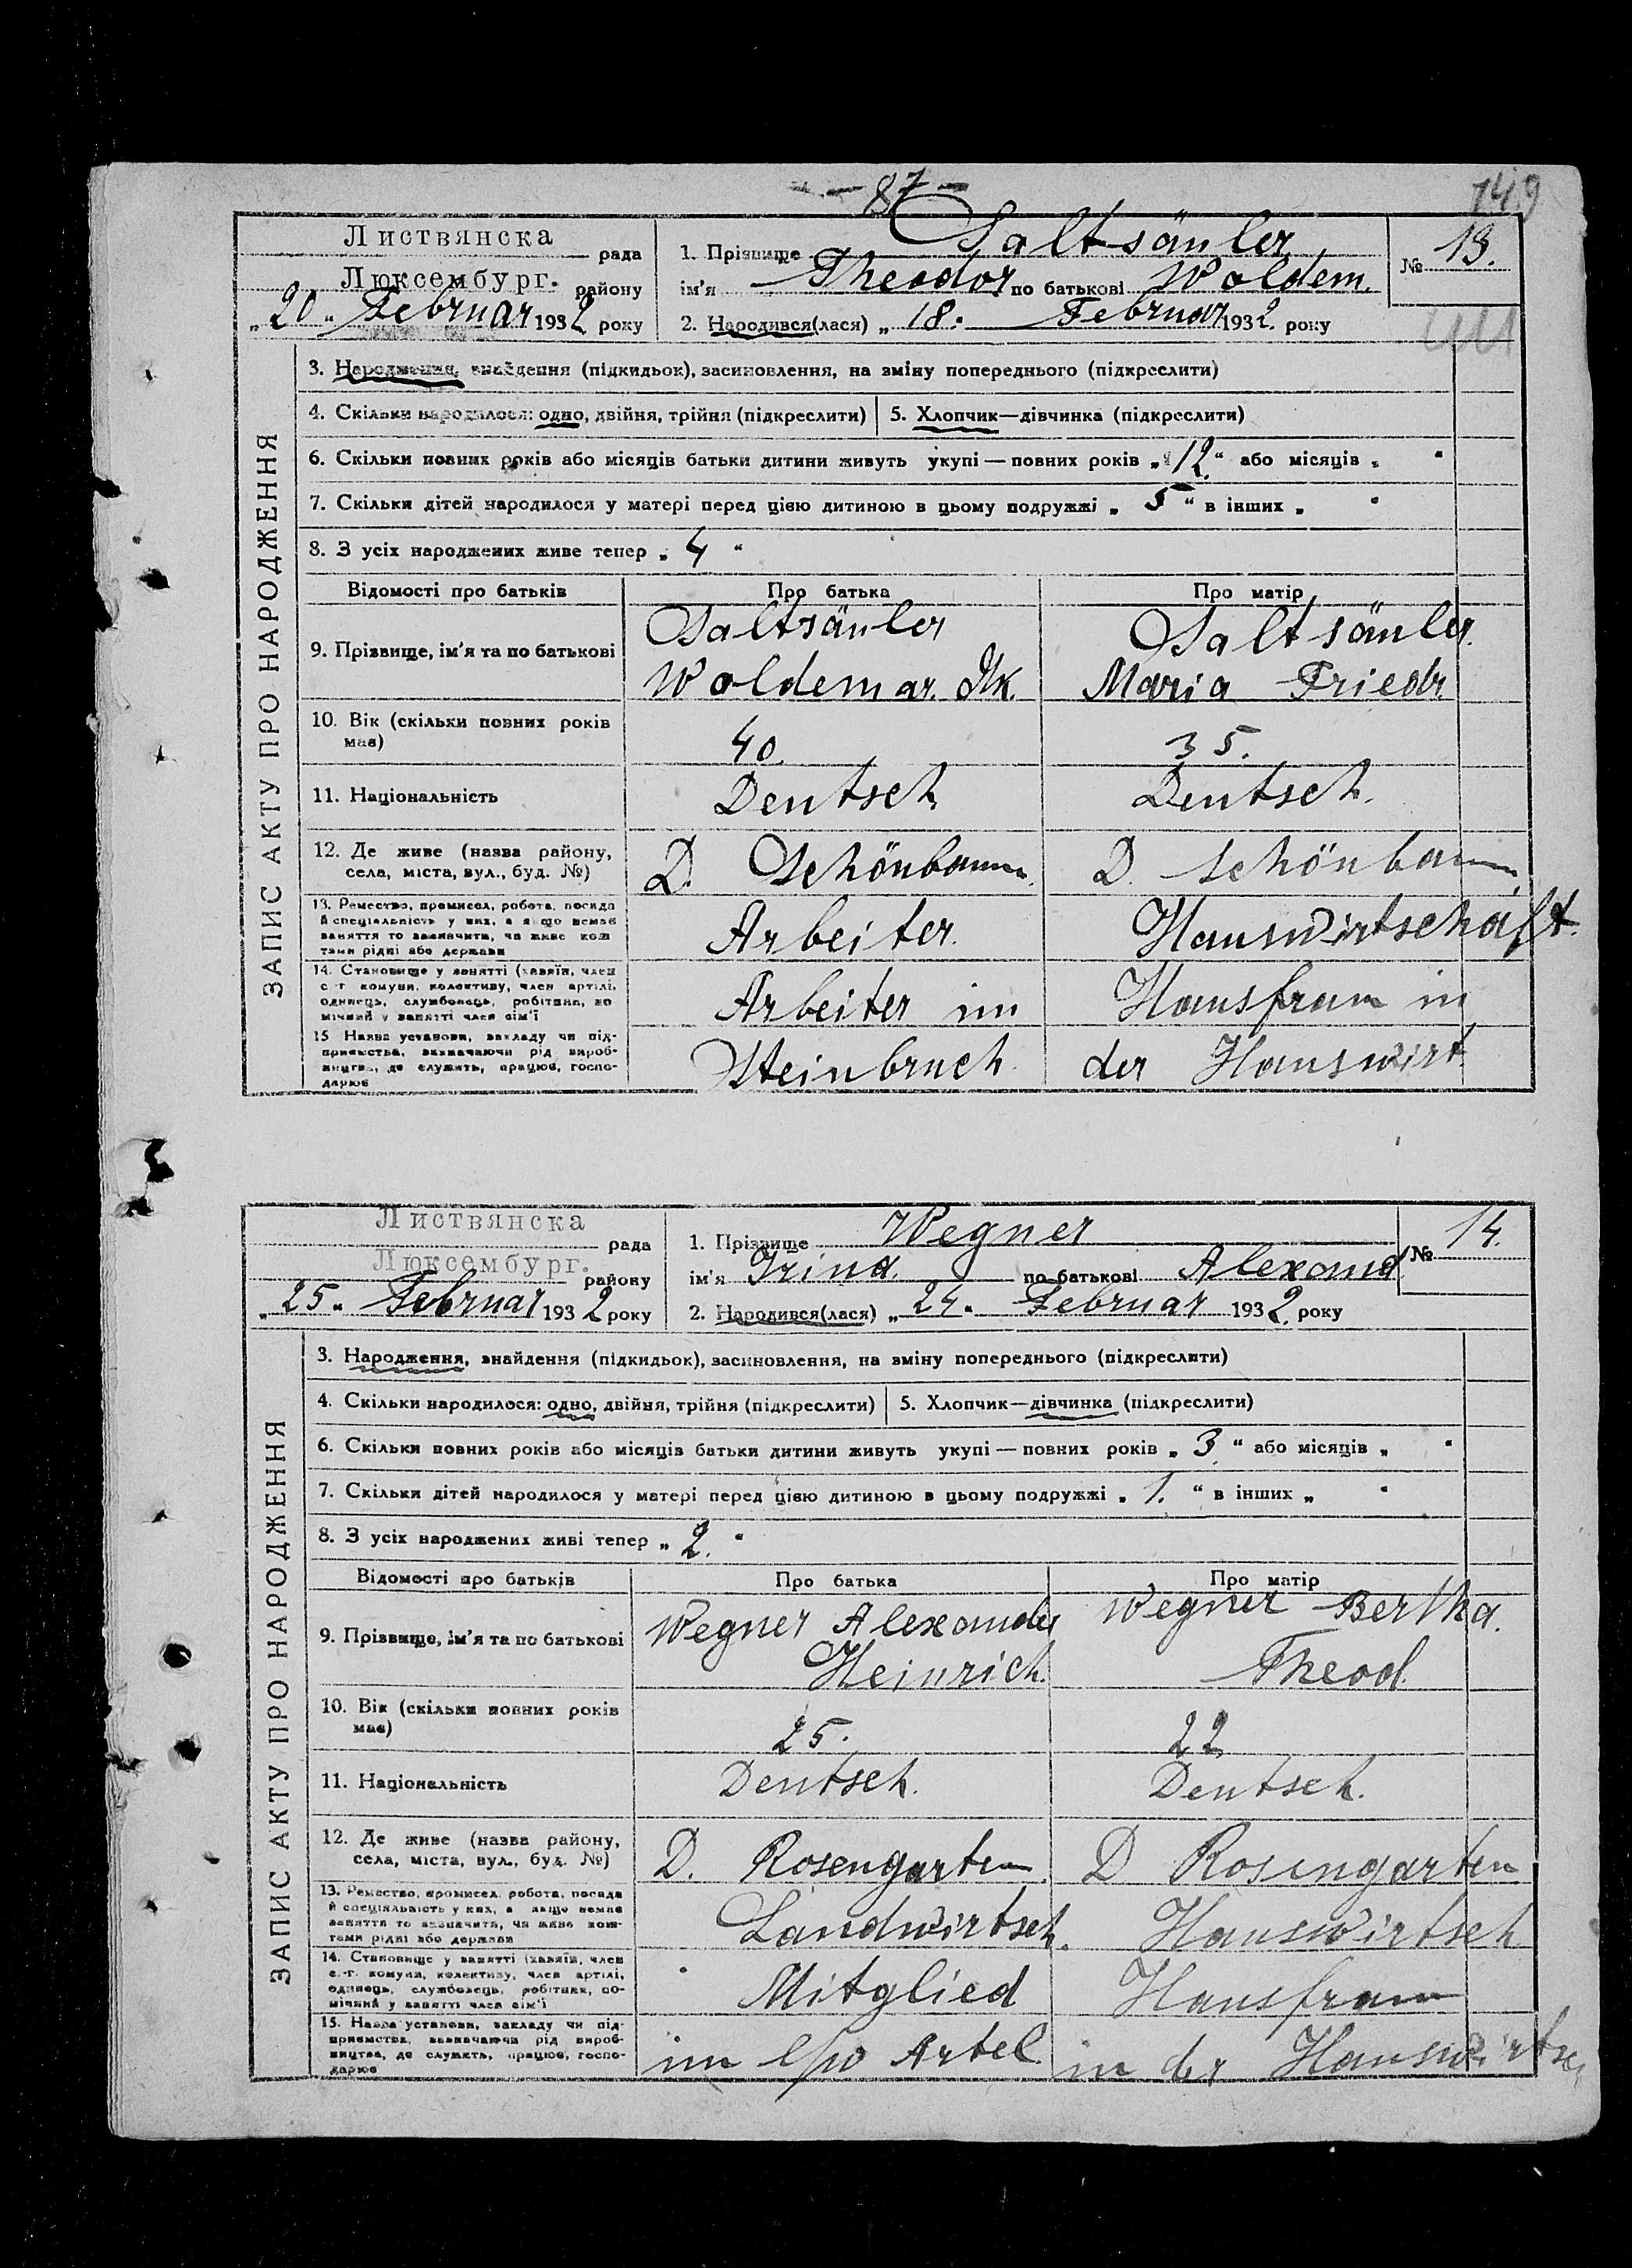 - 87 -
149
Листвянска рада
Люксембург. району
„20“ Februar 1932 року
1. Прізвище Saltsäuler
ім'я Theodor по батькові Woldem.
2. Народився(лася) „18. Februar 1932. року
№ 13.
ЗАПИС АКТУ ПРО НАРОДЖЕННЯ
3. Народження, знайдення (підкидьок), засиновлення, на зміну попереднього (підкреслити)
4. Скільки народилося: одно, двійня, трійня (підкреслити) 5. Хлопчик—дівчинка (підкреслити)
6. Скільки повних років або місяців батьки дитини живуть укупі — повних років „12“ або місяців „ “
7. Скільки дітей народилося у матері перед цією дитиною в цьому подружжі „ 5 “ в інших „ “
8. З усіх народжених живе тепер „ 4 “
Відомості про батьків Про батька Про матір
9. Прізвище, ім'я та по батькові
Saltsäuler Saltsäuler.
Woldemar. Maria Friedr
10. Вік (скільки повних років має)
40. 35.
11. Національність Deutsch Deutsch.
12. Де живе (назва району, села, міста, вул., буд. №)
D. Schönbaum. D. Schönbaum.
13. Ремество, промисел, робота, посада
й спеціальність у них, а якщо немає
заняття то зазначити, чи живе кош
тами рідні або держави
Arbeiter. Hauswirtschaft.
14. Становище у занятті (хазяїн, член
с.-г. комуни, колективу, член артілі,
одинець, службовець, робітник, по
мічний у занятті член сім'ї
Arbeiter im Hausfrau in
15 Назва установи, закладу чи під-
приємства, зазначаючи рід вироб-
ництва, де служить, працює, госпо-
дарює
Steinbruch der Hauswirt.
Листвянска рада
Люксембург. району
„25“ Februar 1932 року
1. Прізвище Wegner
ім'я Irina. по батькові Alexand
2. Народився(лася) „24“ Februar 1932. року
№ 14.
ЗАПИС АКТУ ПРО НАРОДЖЕННЯ
3. Народження, знайдення (підкидьок), засиновлення, на зміну попереднього (підкреслити)
4. Скільки народилося: одно, двійня, трійня (підкреслити) 5. Хлопчик—дівчинка (підкреслити)
6. Скільки повних років або місяців батьки дитини живуть укупі — повних років „ 3. “ або місяців „ “
7. Скільки дітей народилося у матері перед цією дитиною в цьому подружжі „ 1. “ в інших „ “
8. З усіх народжених живі тепер „ 2. “
Відомості про батьків Про батька Про матір
9. Прізвище, ім'я та по батькові
Wegner Alexander Wegner Bertha.
Heinrich. Theod.
10. Вік (скільки повних років має)
25. 22
11. Національність Deutsch. Deutsch.
12. Де живе (назва району, села, міста, вул., буд. №)
D. Rosengarten. D Rosengarten
13. Ремество, промисел, робота, посада
й спеціальність у них, а якщо немає
заняття то зазначити, чи живе кош-
тами рідні або держави
Landwirtsch. Hauswirtsch
14. Становище у занятті (хазяїн, член
с.-г. комуни, колективу, член артілі,
одинець, службовець, робітник, по-
мічний у занятті член сім'ї
Mitglied Hausfrau
15. Назва установи, закладу чи під-
приємства, зазначаючи рід вироб-
ництва, де служить, працює, госпо-
дарює
im Artel. in der Hauswirtsch